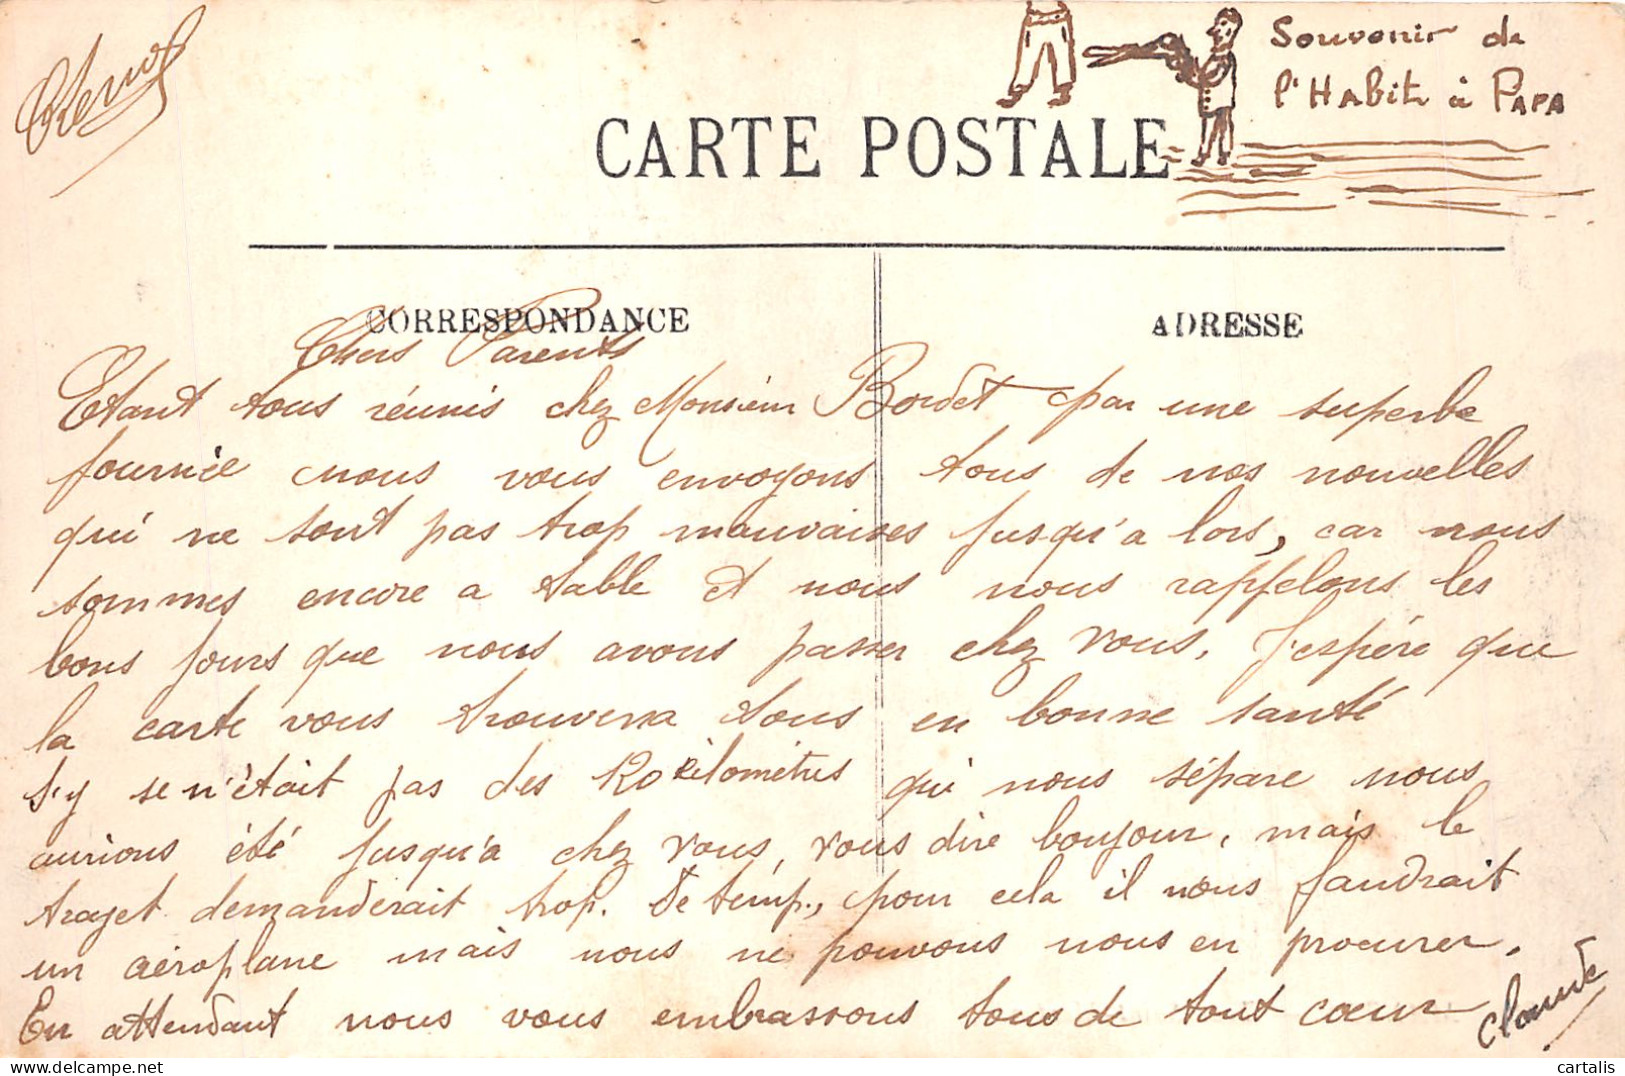 Souvenir de
l'Habit à PAPA
CARTE POSTALE
CORRESPONDANCE
ADRESSE
Chers Parents
Etant tous réunis chez Monsieur Bordet par une superbe
journée nous vous envoyons tous de nos nouvelles
qui ne sont pas trop mauvaises jusqu'a lors, car nous
sommes encore a table et nous nous rappelons les
bons jours que nous avons passer chez vous. J'espère que
la carte vous trouvera tous en bonne santé
s'y se n'était pas des kilomètres qui nous sépare nous
aurions été jusqu'a chez vous, vous dire boujour, mais le
trajet demanderait trop. de temp., pour cela il nous faudrait
un aéroplane mais nous ne pouvons nous en procurer.
En attendant nous vous embrassons tous de tout coeur
Claude
cartalis
www.delcampe.net